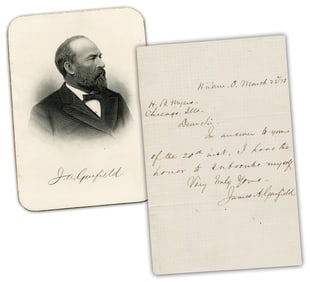 J. A. Garfield
Hiram, O. March 23
H. A. Myers.
Chicago, Ills.
Dear Sir
In answer to yours
of the 20th inst, I have the
honor to subscribe myself
Very Truly Yours
James A. Garfield